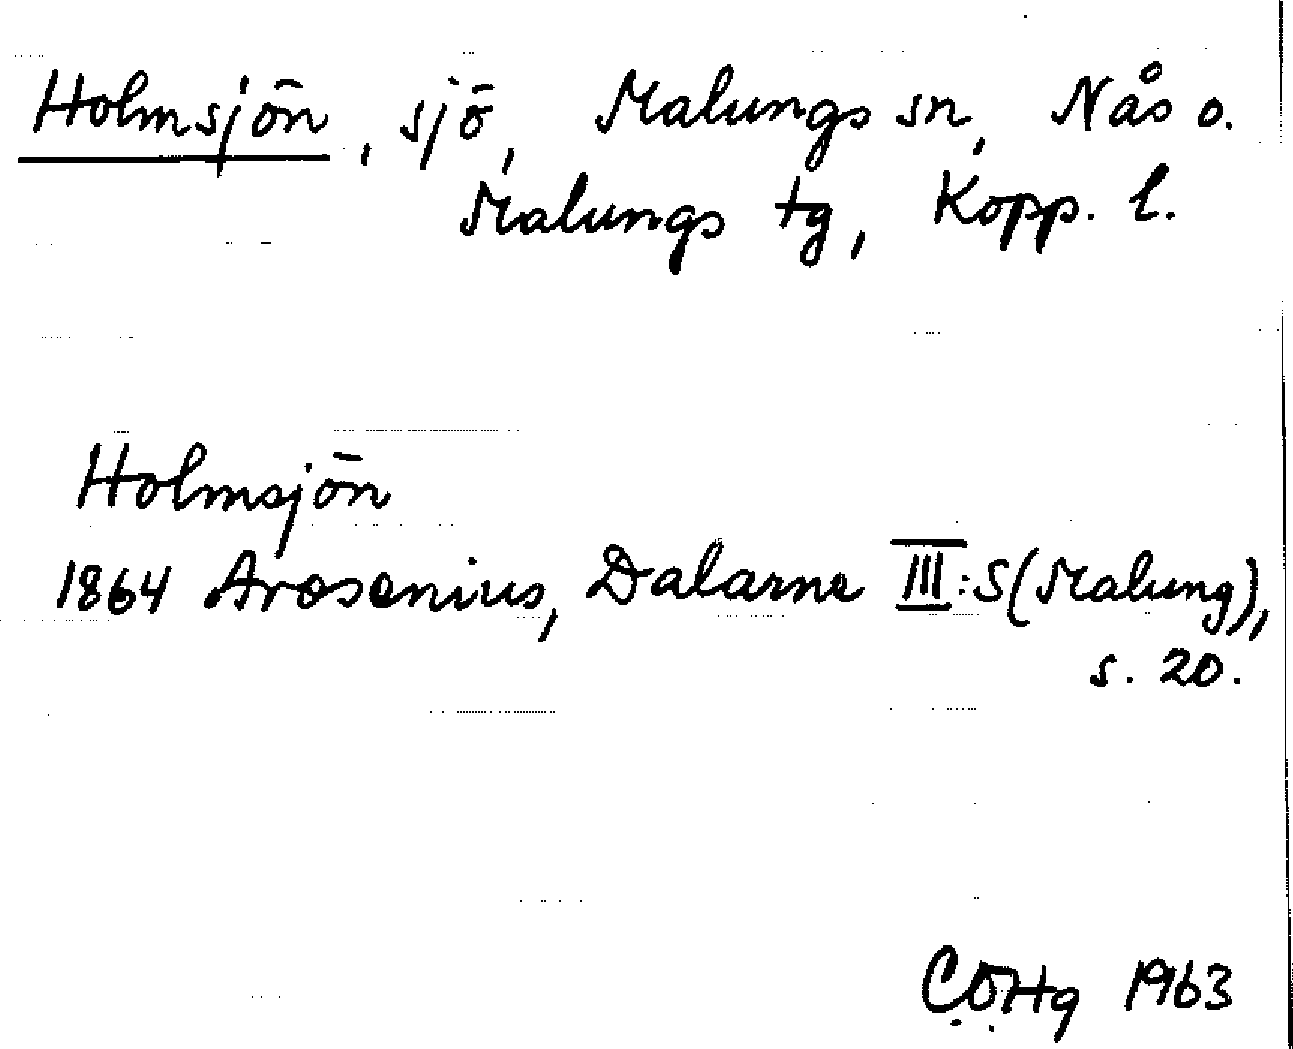 Holmsjön, sjö, Malungs sn, Nås o.
Malungs tg, Kopp. l.
Holmsjön
1864 Arosenius, Dalarne III:S(Malung),
s. 20.
C.Ö.Hg 1963